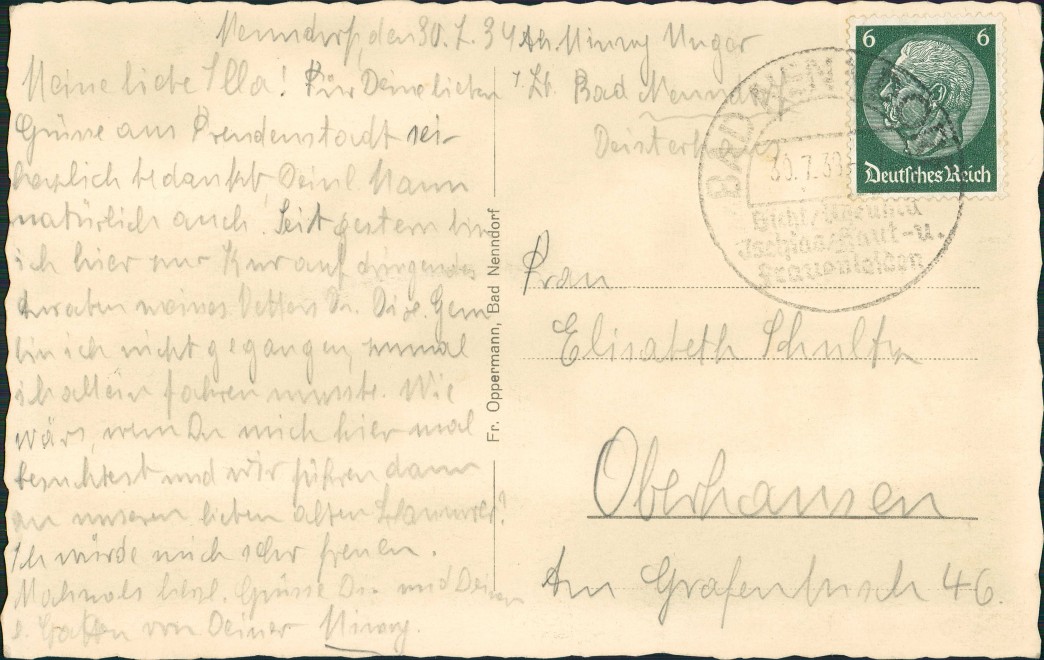 Nenndorf, den 30.7.34
Meine liebe Illa! Für Deine lieben
Grüsse aus Freudenstadt sei
herzlich bedankt Deinl. Mann
natürlich auch. Seit gestern bin
ich hier zur Kur auf dringendes
Anraten meines Vetters Dr. Gern
bin ich nicht gegangen, zumal
ich allein fahren musste. Wie
wärs, wenn Du mich hier mal
besuchtest und wir führen dann
an unseren lieben alten
Ich würde mich sehr freuen.
Nochmals herzl. Grüsse Dir und Deinem
l. Gatten von Deiner Minny.
Fr. Oppermann, Bad Nenndorf
Abs. Minny Unger
z. Zt. Bad Nenndorf
Deisterhaus
6 6
Deutsches Reich
BAD NENNDORF
30.7.39
Gicht/Rheuma
Ischias/Haut-u.
Frauenleiden
Frau
Elisabeth
Oberhausen
Am Grafenbusch 46.